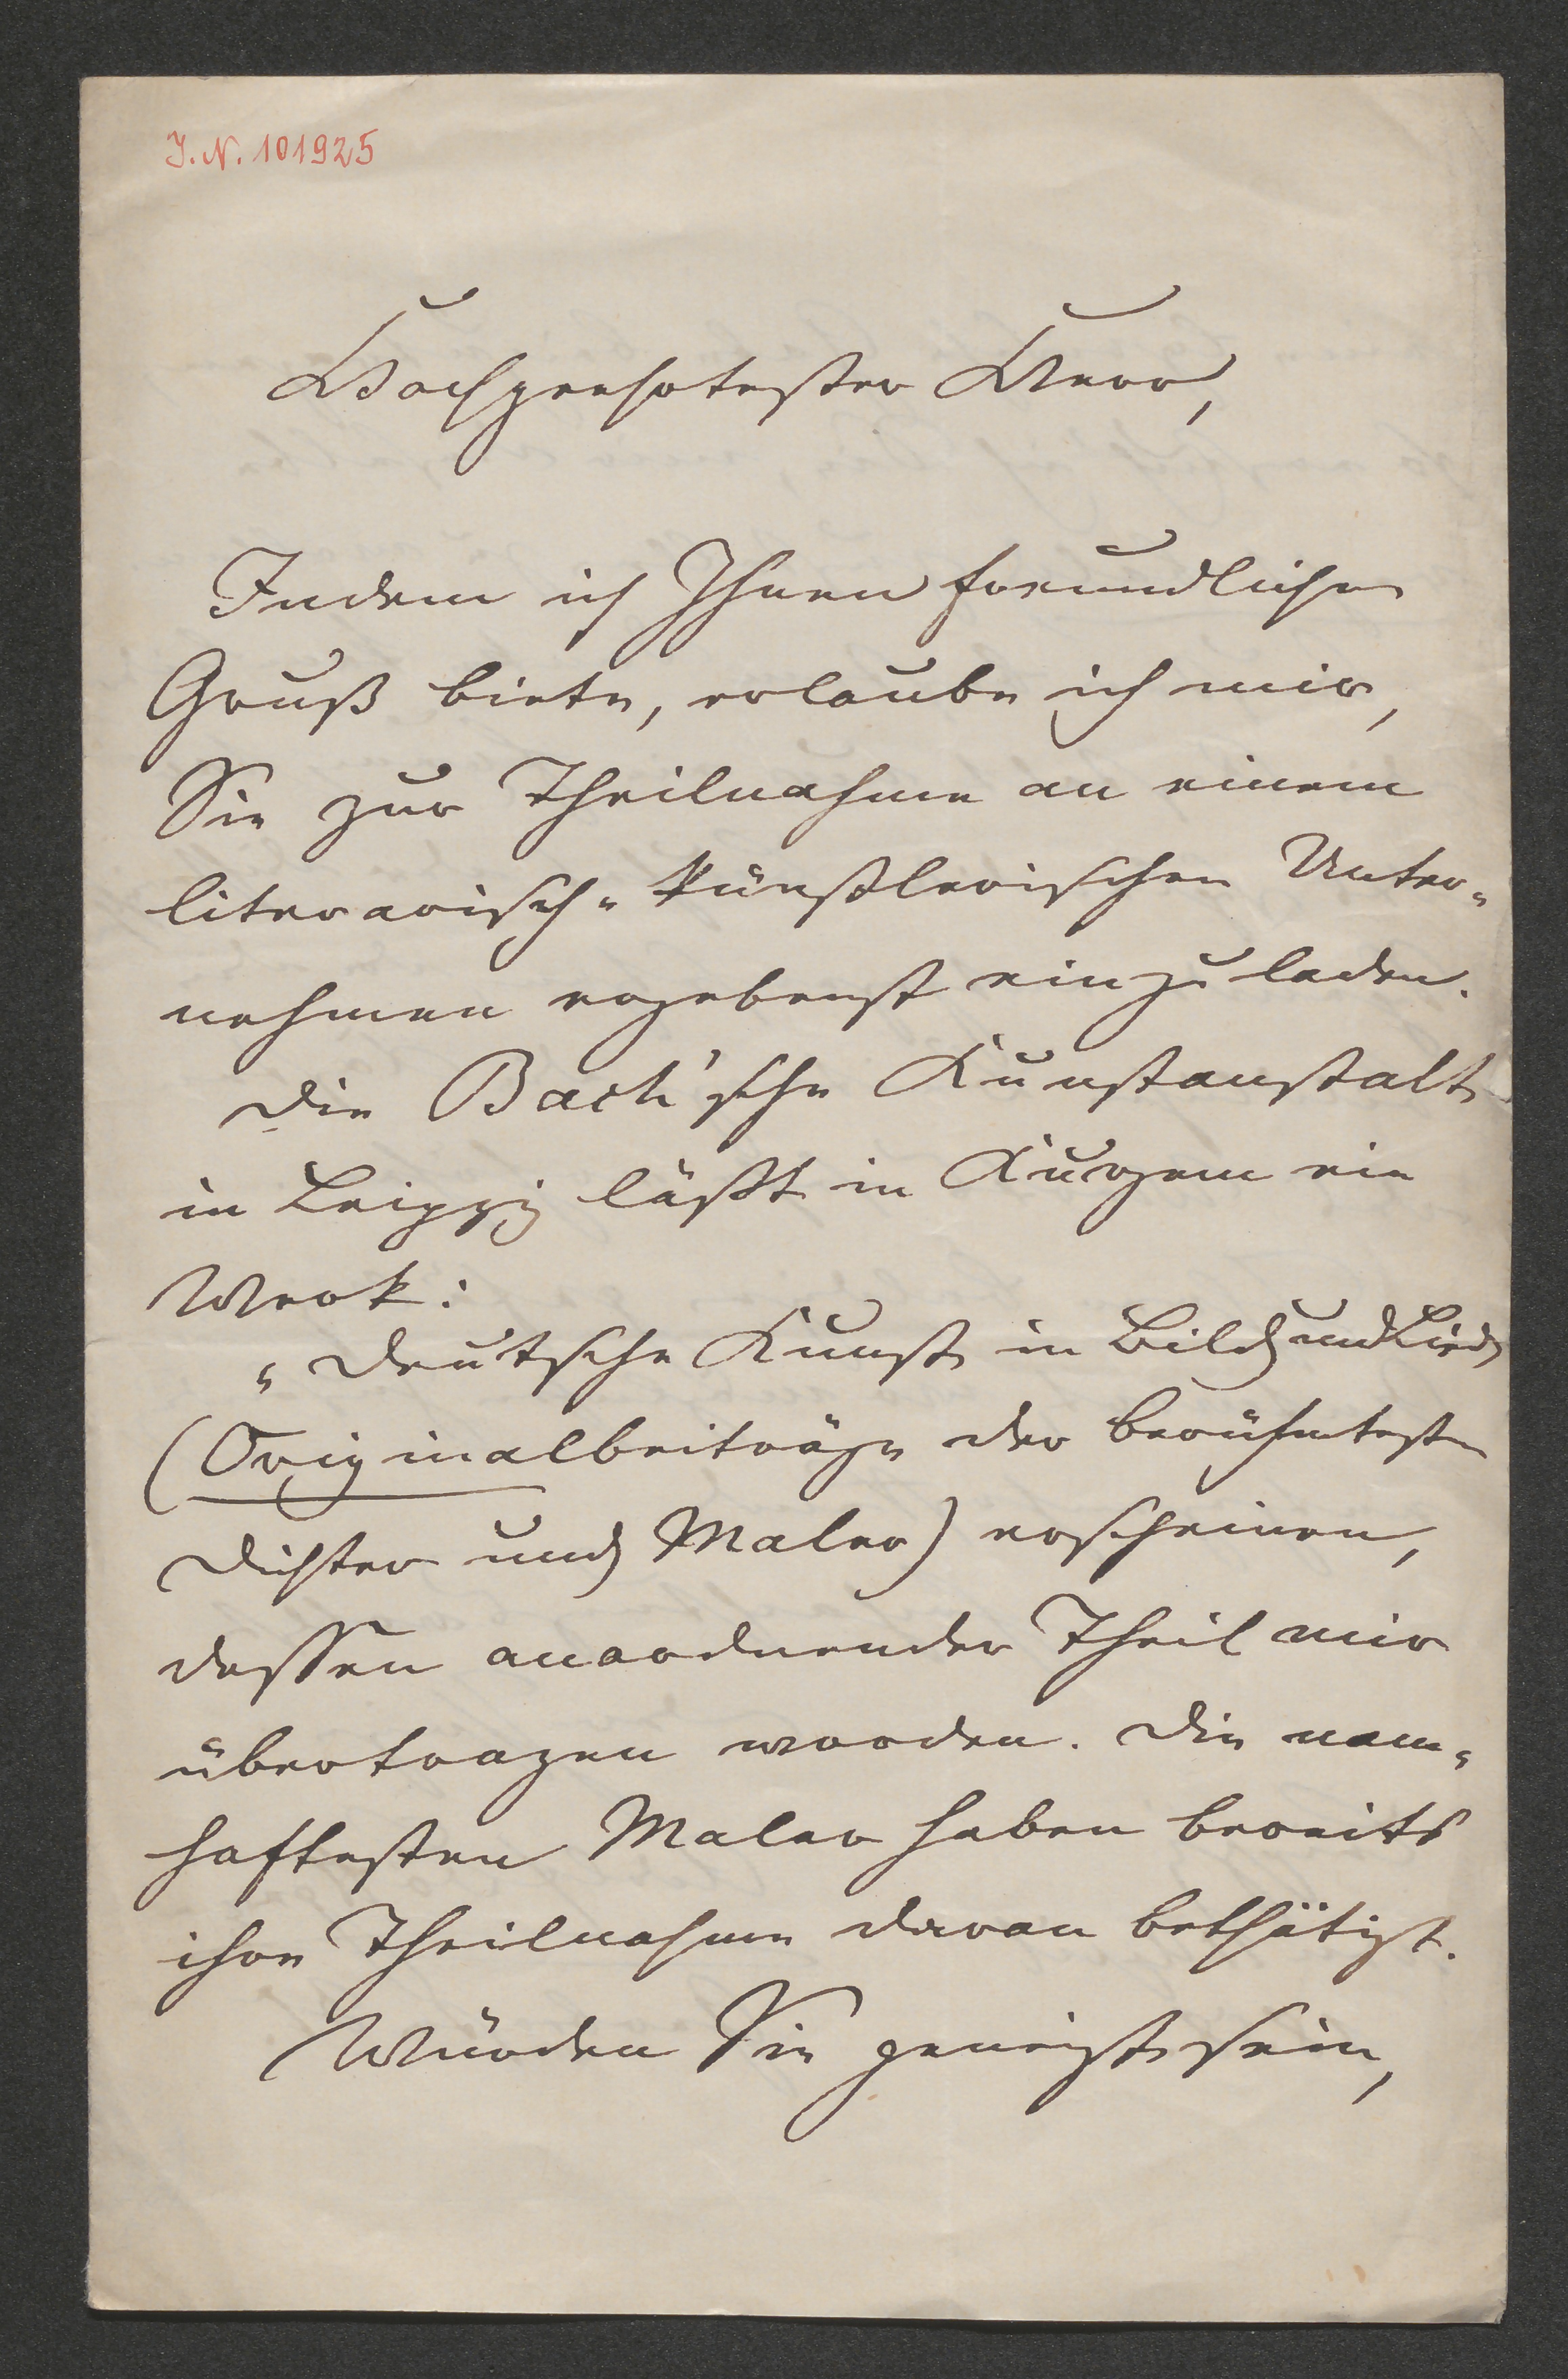 J. N. 101925
Hochgeehrtester Herr,
Indem ich Ihnen freundlichen
Gruß biete, erlaube ich mir,
Sie zur Theilnahme an einem
literarisch-künstlerischen Unter-
nehmen ergebenst einzuladen.
Die Bach'sche Kunstanstalt
in Leipzig läßt in Kurzem ein
Werk:
"Deutsche Kunst in Bild und Lied
(Originalbeiträge der berühmtesten
Dichter und Maler) erscheinen,
dessen anordnender Theil mir
übertragen worden. Die nam-
haftesten Maler haben bereits
ihre Theilnahme daran bethätigt.
Würden Sie geneigt sein,